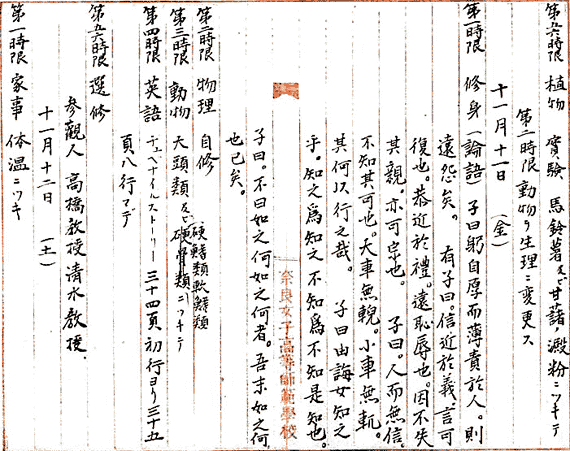 第五六時限 植物 實験 馬鈴薯及ビ甘藷ノ澱粉ニツキテ
第一時限動物ヲ生理ニ変更ス
十一月十一日 (金)
第一時限 修身(論語)子曰躬自厚而薄責於人。則
遠怨矣。 有子曰信近於義、言可
復也。恭近於禮。遠恥辱也。因不失
其親。亦可宗也。 子曰。人而無信。
不知其可也。大車無輗。小車無軏。
其何以行之哉。 子曰由誨女知之
乎。知之爲知之不知爲不知是知也。
子曰。不曰如之何如之何者。吾末如之何
也已矣。
第二時限 物理 自修
第三時限 動物 大頭類及ビ硬骨類ニツキテ
硬鰭類軟鰭類
第四時限 英語 チュベナイルストーリー 三十四頁初行ヨリ三十五
頁八行マデ
第五六時限 選修
参觀人 高橋教授清水教授
十一月十二日 (土)
第一時限 家事 体温ニツキ
奈良女子高等師範學校